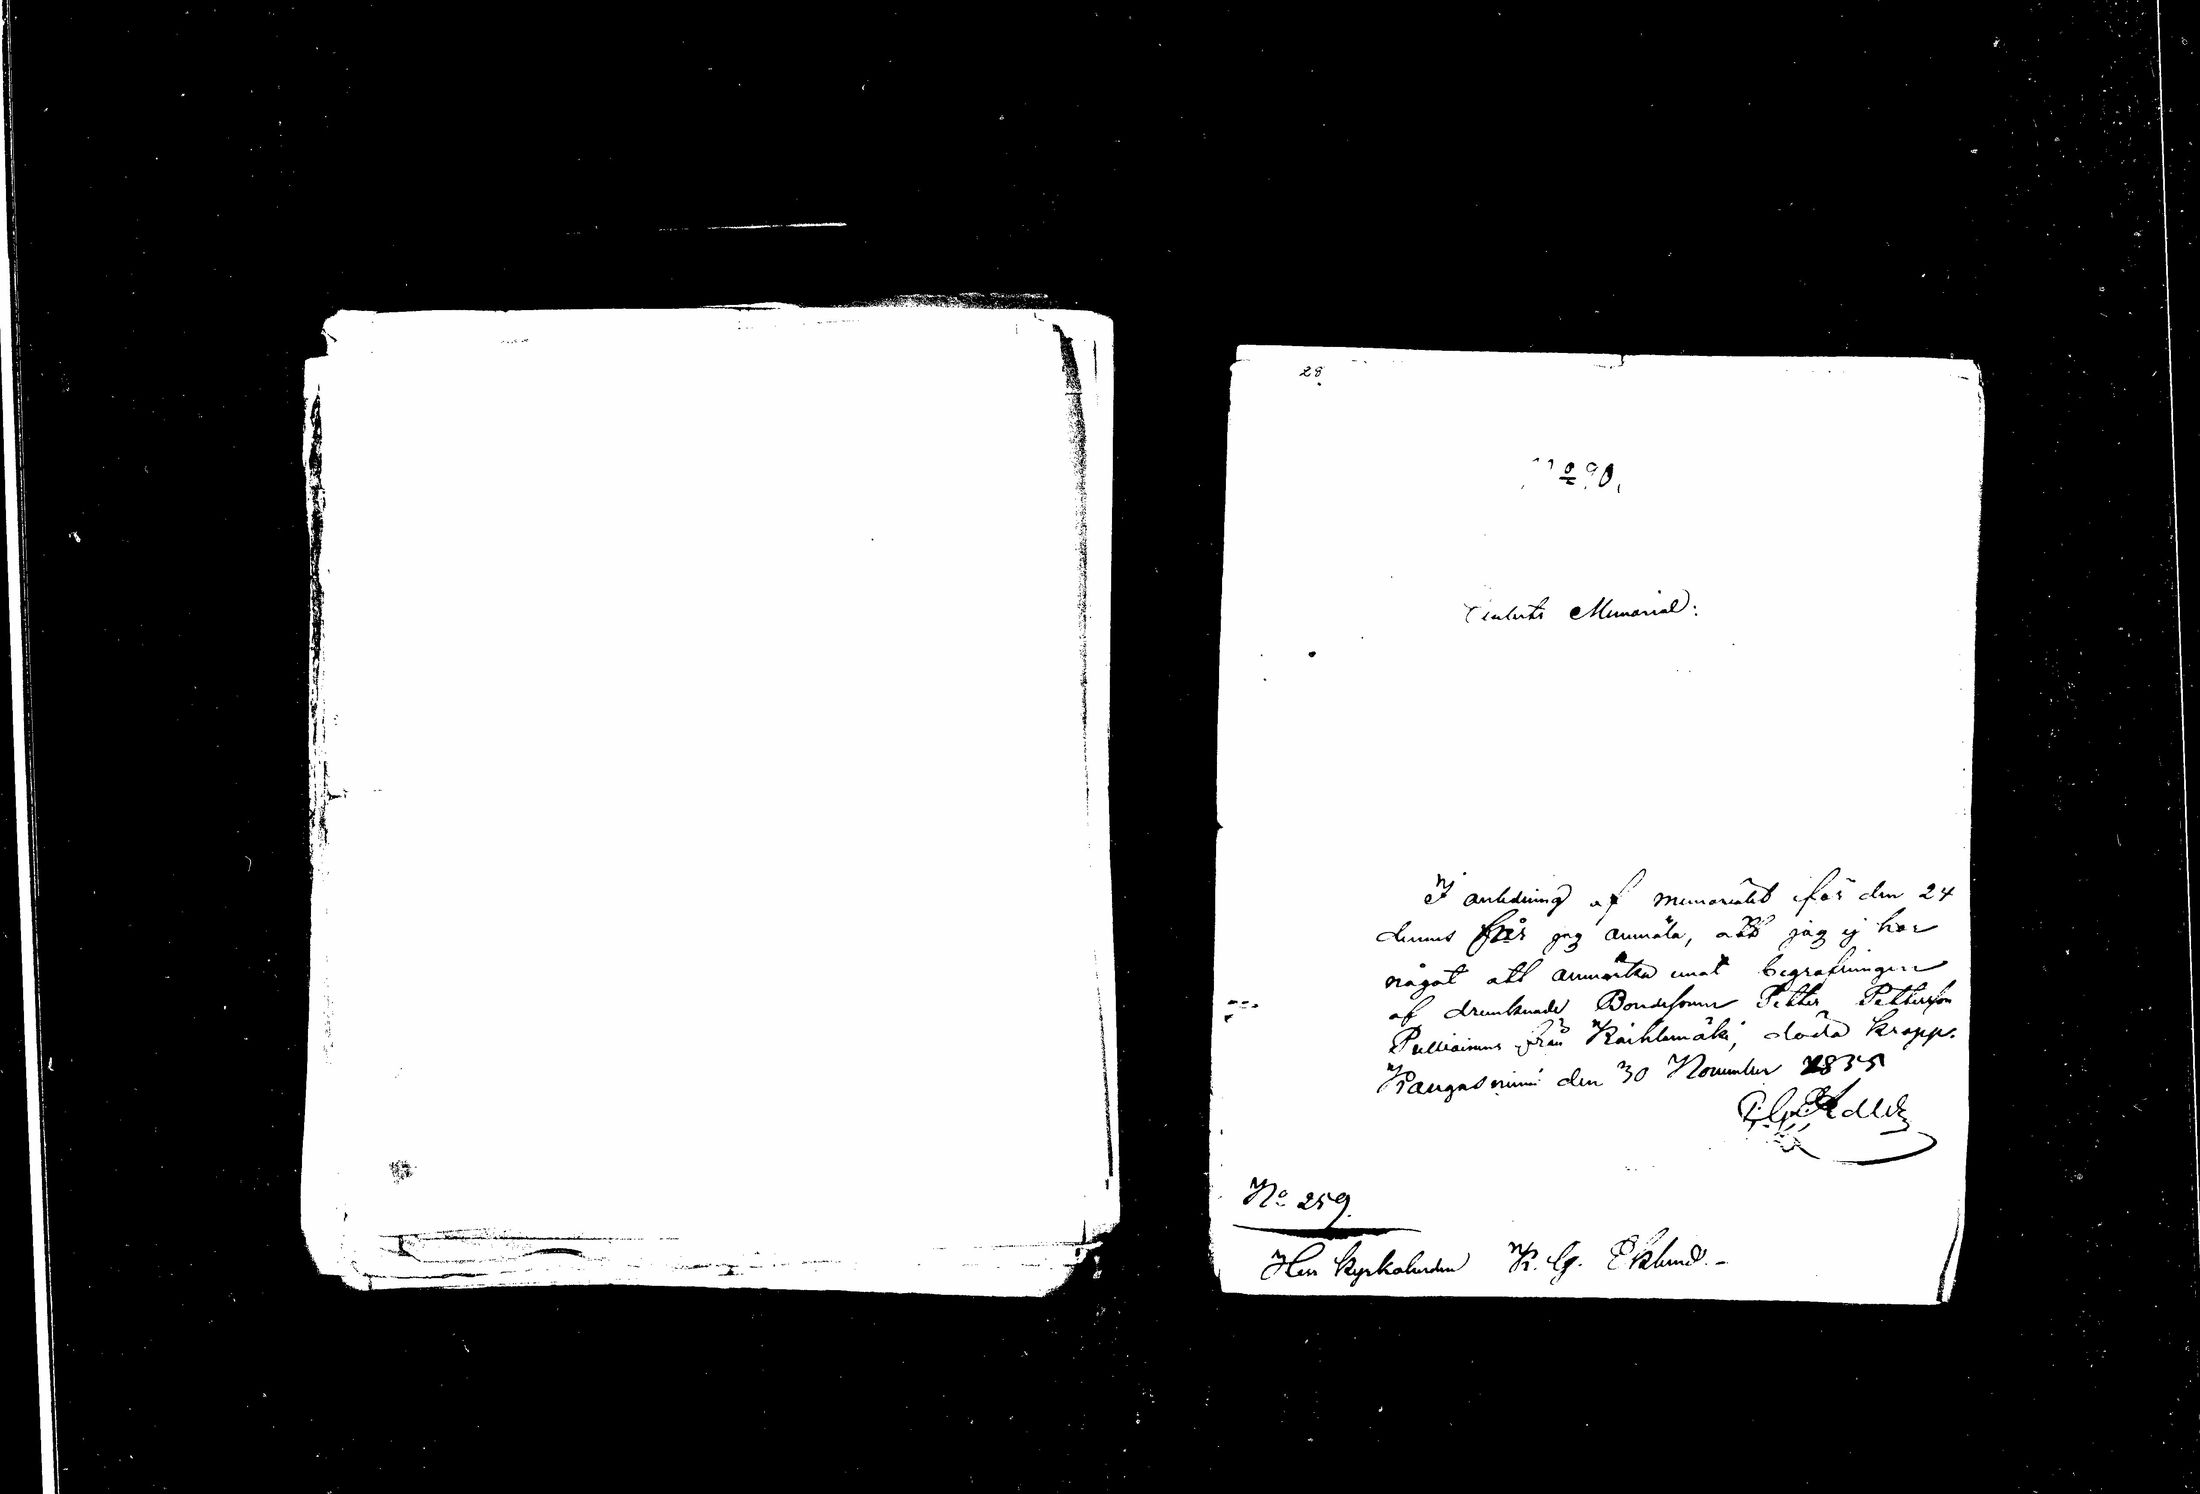 28.
No 90.
Memorial:
I anledning af Memorialet för den 24
dennes får jag anmäla, att jag ej har
något att anmärka emot begrafningen
af drunknade Bondesonen Petter Pettersson
Pulliainens från döda kropp.
Kangasniemi den 30 November 1855
No 259.
Herr Kyrkoherden K. G. Eklund.-